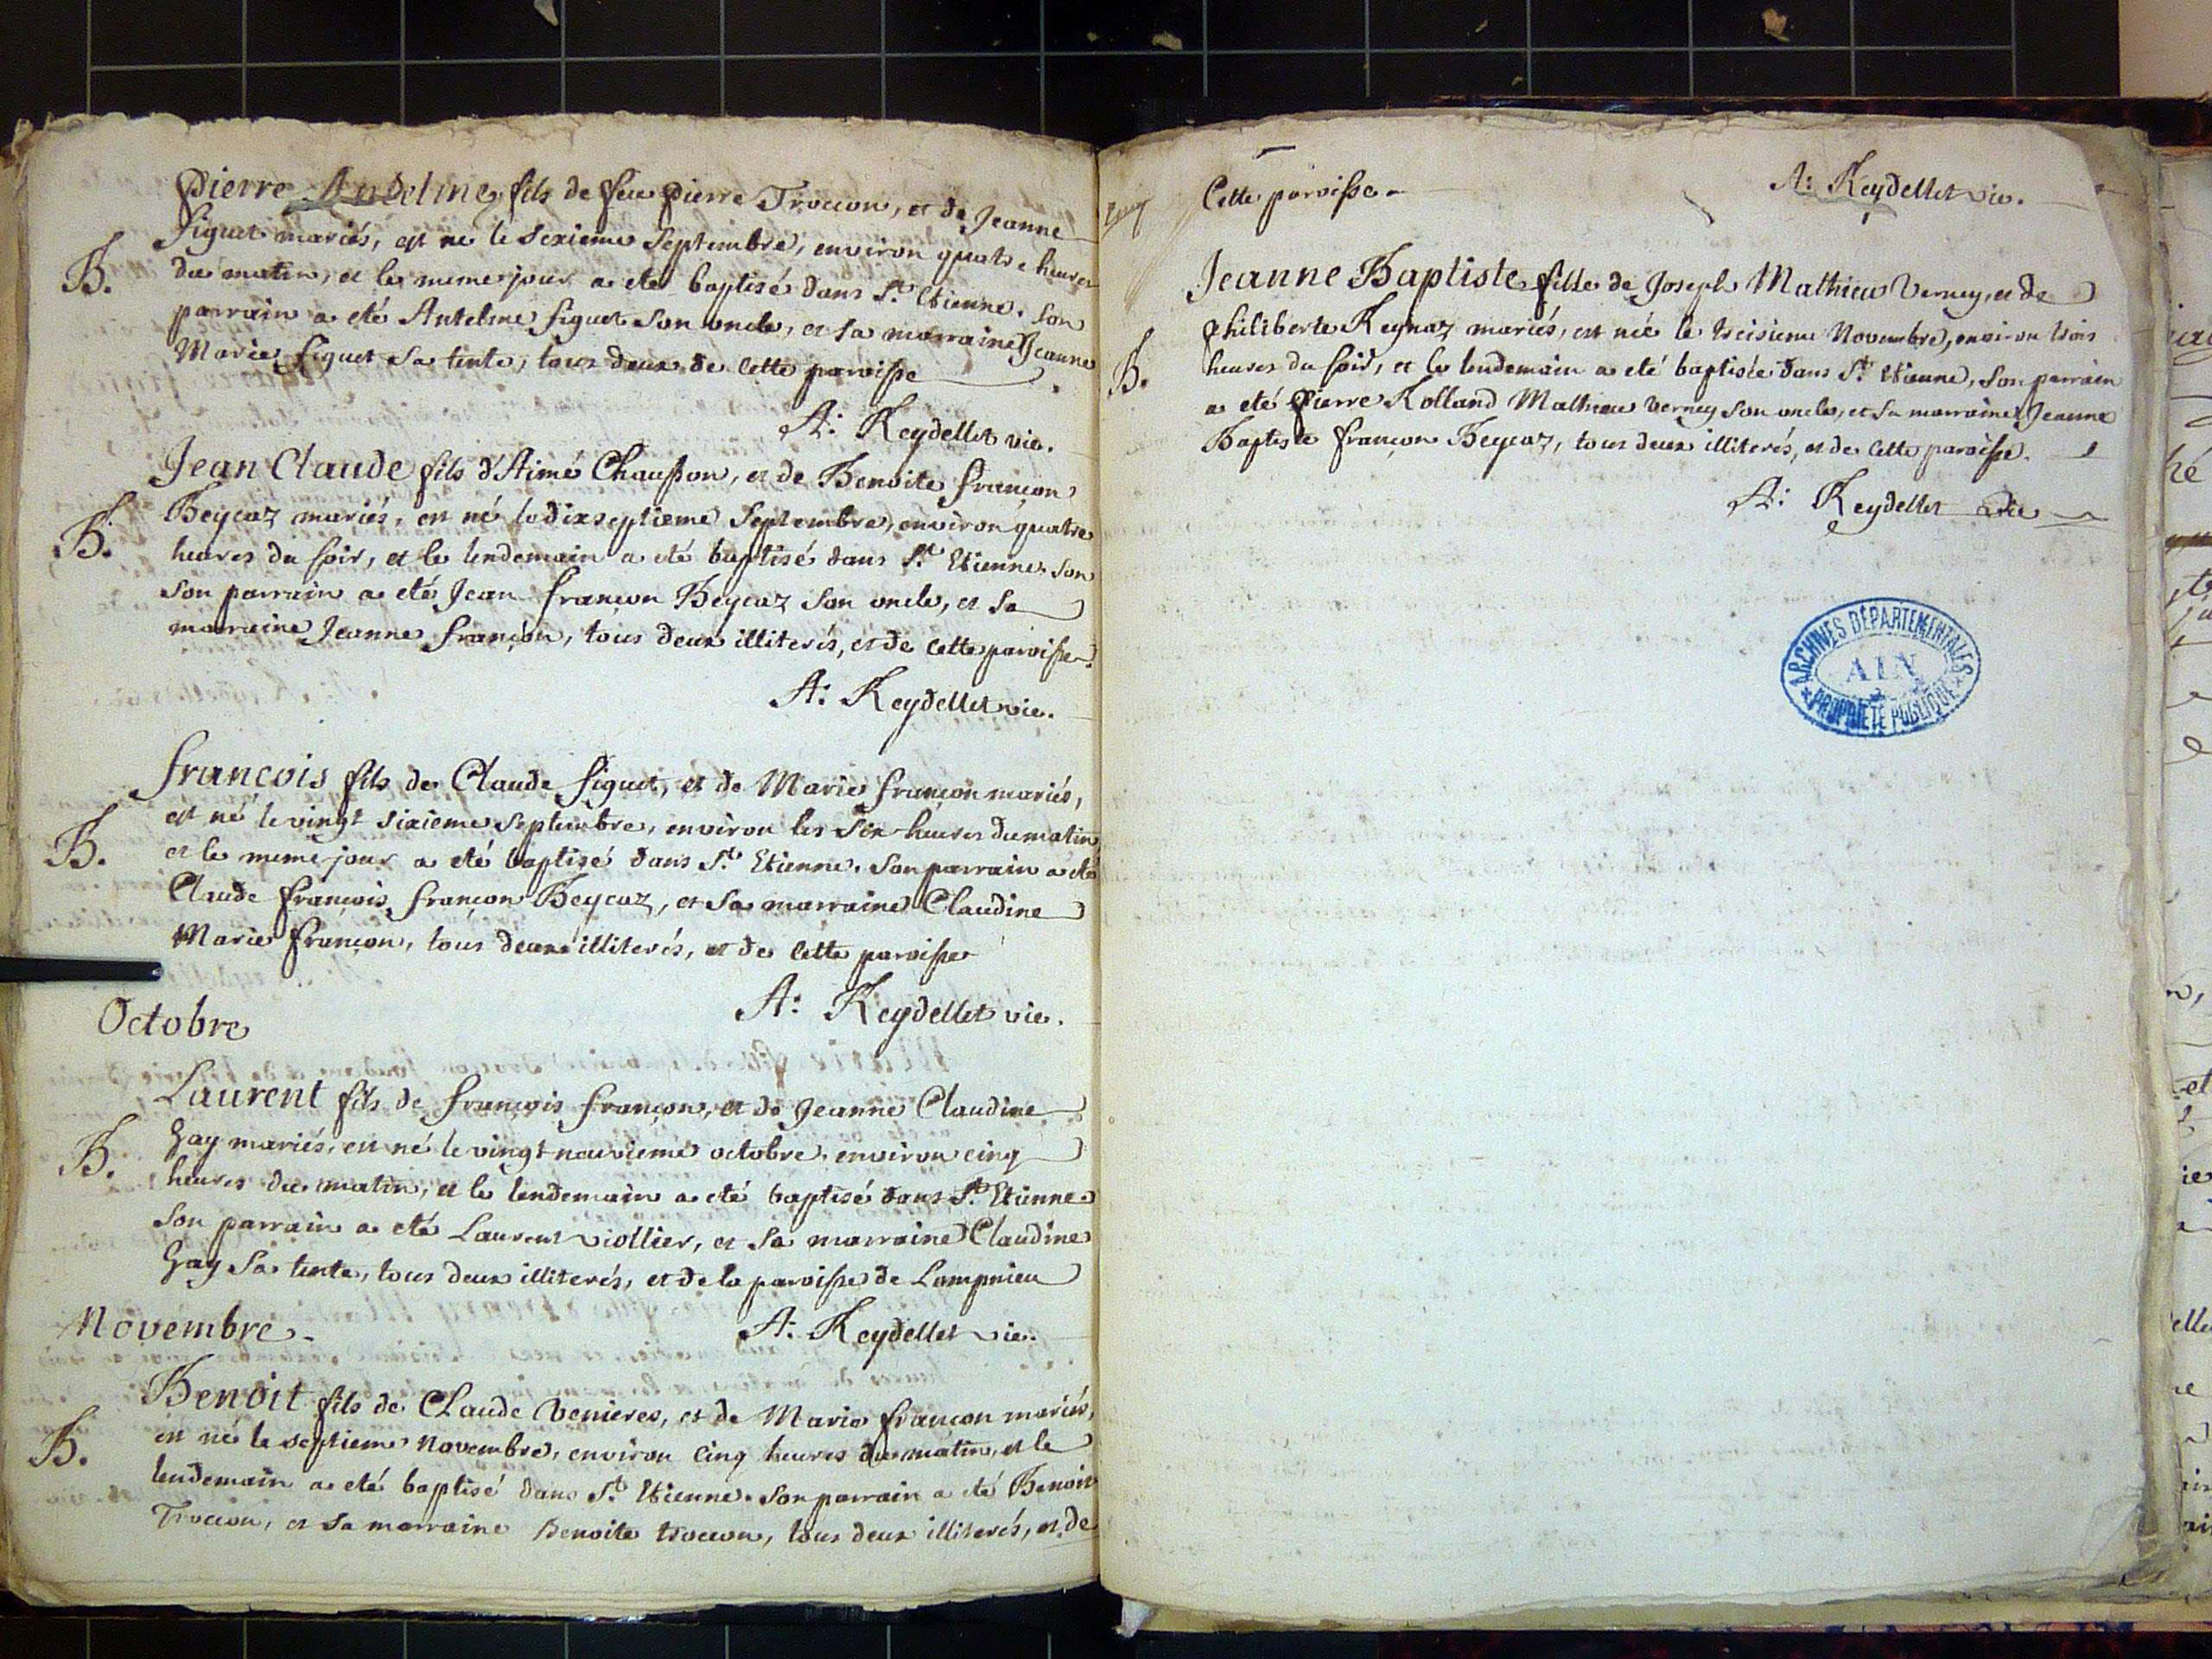 Pierre Andelme fils de feu pierre Trocon, et de Jeanne
figuet mariés, est né le sexieme Septembre, environ quatre heures
B.
du matin, et le meme jour a eté baptisé dans St. Etienne. Son
parrain a eté Antelme figuet son oncle, et sa marraine Jeanne
Marie figuet sa tente, tous deux de cette paroisse
A: Reydellet vic.
Jean Claude fils d'Aimé Chausson, et de Benoite françon
B.
Beycaz mariés, est né le dixseptieme Septembre, environ quatre
heures du soir, et le lendemain a eté baptisé dans St. Etienne. Son
Son parrain a eté Jean françon Beycaz son oncle, et sa
marraine Jeanne françon, tous deux illiterés, et de cette paroisse
A: Reydellet vic.
françois fils de Claude figuet, et de Marie françon mariés,
est né le vingt sixieme Septembre, environ les six heures du matin
B.
et le meme jour a eté baptisé dans St. Etienne. Son parrain a eté
Claude françois françon Beycaz, et sa marraine Claudine
Marie françon, tous deux illiterés, et de cette paroisse
A: Reydellet vic.
Octobre
Laurent fils de françois françon, et de Jeanne Claudine
B.
Gay mariés, est né le vingt neuvieme octobre, environ cinq
heures du matin, et le lendemain a eté baptisé dans St. Etienne
Son parrain a eté Laurent viollier, et sa marraine Claudine
Gay sa tente, tous deux illiterés, et de la paroisse de Lompnieu
Novembre
A: Reydellet vic.
Benoit fils de Claude Venieres, et de Marie françon mariés,
B.
est né le septieme Novembre, environ cinq heures du matin, et le
lendemain a eté baptisé dans St. Etienne. Son parrain a eté Benoit
Trocon, et sa marraine Benoite trocon, tous deux illiterés, et de
Cette paroisse
A: Reydellet vic.
Jeanne Baptiste fille de Joseph Mathieu Verney, et de
Philiberte Reynaz mariés, est née le treisieme Novembre, environ trois
B.
heures du soir, et le lendemain a eté baptisée dans St. Etienne, son parrain
a eté Pierre Rolland Mathieu Verney son oncle, et sa marraine Jeanne
Baptiste françon Beycaz, tous deux illiterés, et de cette paroisse.
A: Reydellet vic
ARCHIVES DÉPARTEMENTALES
AIN
PROPRIÉTÉ PUBLIQUE